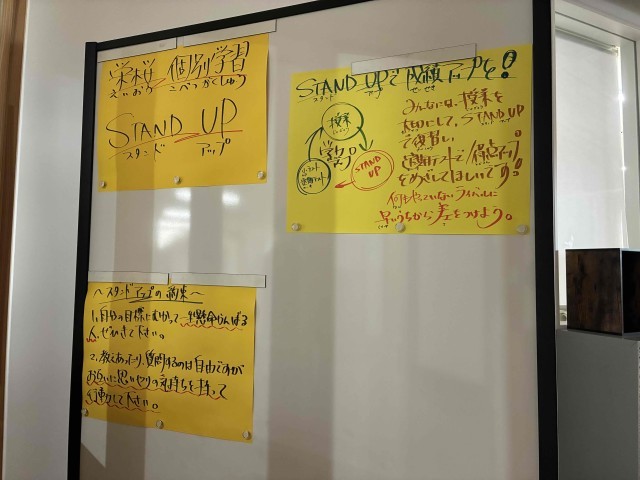 栄桜 個別学習
えいおう こべつがくしゅう
STAND UP
スタンド アップ
STAND UPで成績アップを!
スタンド アップ せいせき
みんなには、授業を
大切にして、STAND UP
で復習し、
定期テストで得点アップ
をめざしてほしいです!
何もやっていないライバルに
早いうちから差をつけよう。
授業
学力
STAND
UP
小テスト
定期テスト
〜スタンドアップの約束〜
1、自分の目標にむかって一生懸命がんばる
人、ぜひきて下さい。
2、教えあったり、質問するのは自由ですが
おたがいに思いやりの気持ちを持って
行動して下さい。